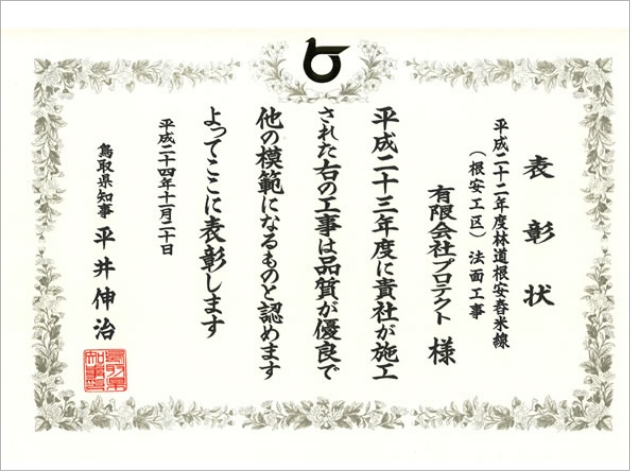 表彰状
平成二十二年度林道根安舂米線
（根安工区）法面工事
有限会社プロテクト 様
平成二十三年度に貴社が施工
された右の工事は品質が優良で
他の模範になるものと認めます
よってここに表彰します
平成二十四年十一月二十日
鳥取県知事 平井伸治